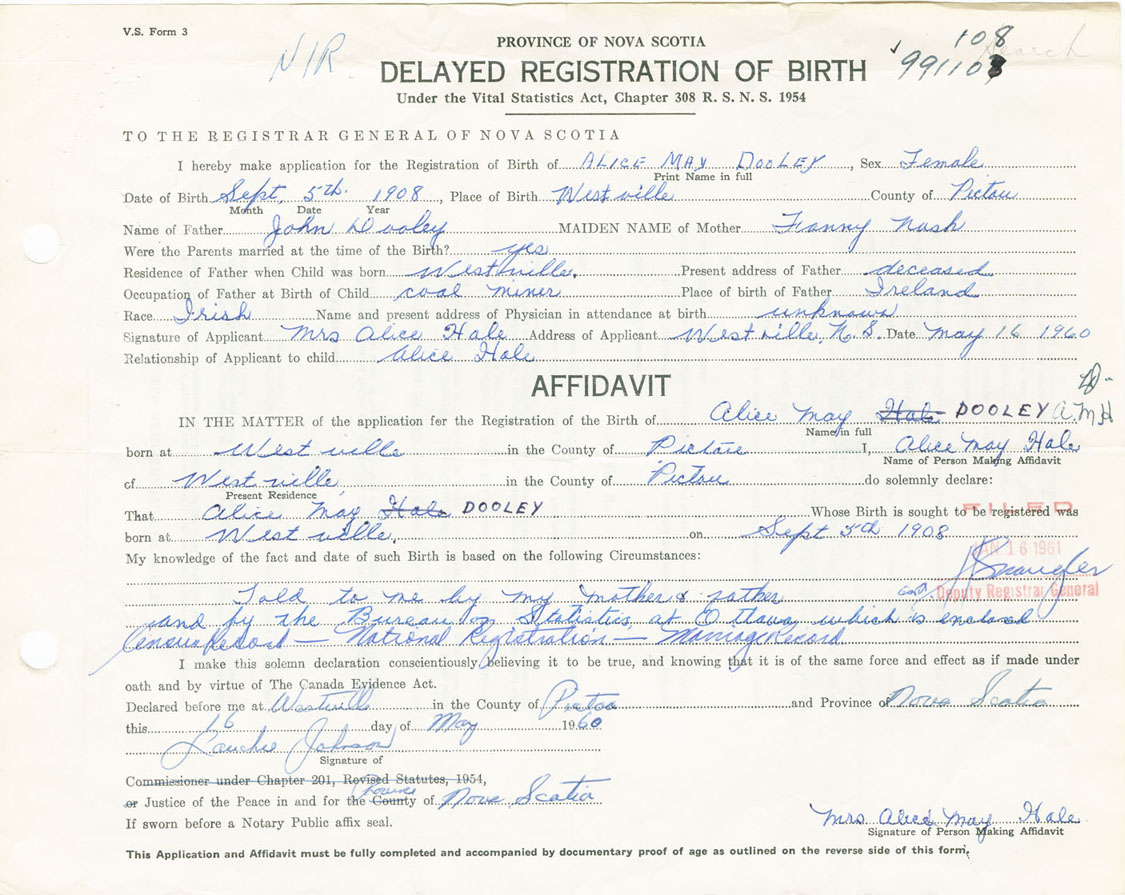 V.S. Form 3
N/R.
108
Search
PROVINCE OF NOVA SCOTIA
99110
DELAYED REGISTRATION OF BIRTH
Under the Vital Statistics Act, Chapter 308 R. S. N. S. 1954
TO THE REGISTRAR GENERAL OF NOVA SCOTIA
I hereby make application for the Registration of Birth of ALICE MAY DOOLEY, Sex Female
Print Name in full
Date of Birth Sept, 5th. 1908, Place of Birth Westville County of Pictou
Month Date Year
Name of Father John Dooley MAIDEN NAME of Mother Fanny Nash
Were the Parents married at the time of the Birth? yes
Residence of Father when Child was born Westville. Present address of Father deceased
Occupation of Father at Birth of Child coal miner Place of birth of Father Ireland
Race Irish Name and present address of Physician in attendance at birth unknown
Signature of Applicant Mrs Alice Hale Address of Applicant Westville, N.S. Date May 16 1960
Relationship of Applicant to child Alice Hale
AFFIDAVIT
IN THE MATTER of the application fer the Registration of the Birth of Alice May Hale DOOLEY A.M.H
Name in full
born at Westville in the County of Pictou I, Alice May Hale
Name of Person Making Affidavit
of Westville, in the County of Pictou do solemnly declare:
Present Residence
That Alice May Hale DOOLEY Whose Birth is sought to be registered was
FILED
born at Westville, on Sept 5th 1908
JAN 16 1961
My knowledge of the fact and date of such Birth is based on the following Circumstances:
Deputy Registrar General
Told to me by my mother & father
and by the Bureau of Statistics at Ottawa which is enclosed
Census Record — National Registration — Marriage Record
I make this solemn declaration conscientiously believing it to be true, and knowing that it is of the same force and effect as if made under
oath and by virtue of The Canada Evidence Act.
Declared before me at Westville in the County of Pictou and Province of Nova Scotia
this 16 day of May 1960
Johnson
Signature of
Commissioner under Chapter 201, Revised Statutes, 1954,
Province
or Justice of the Peace in and for the County of Nova Scotia
If sworn before a Notary Public affix seal.
Mrs Alice May Hale
Signature of Person Making Affidavit
This Application and Affidavit must be fully completed and accompanied by documentary proof of age as outlined on the reverse side of this form.